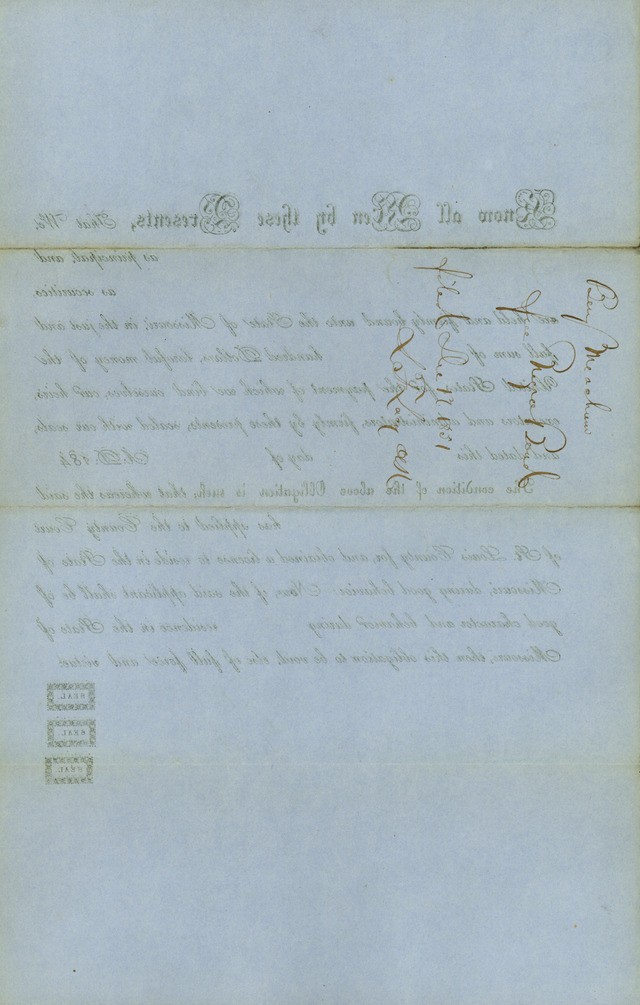 Know all Men by these Presents, That We
as principal, and
as securities
are held and firmly bound unto the State of Missouri, in the just and
full sum of hundred Dollars, lawful money of the
United States, for the payment of which we bind ourselves, our heirs,
executors and administrators, firmly by these presents, sealed with our seals,
and dated this day of A. D. 184
The condition of the above Obligation is such, that whereas the said
has applied to the County Court
of St. Louis County for, and obtained a license to reside in the State of
Missouri, during good behavior: Now, if the said applicant shall be of
good character and behavior during residence in the State of
Missouri, then this obligation to be void, else of full force and virtue.
SEAL.
SEAL.
SEAL.
Free Negro Bond
filed Dec 17 1851